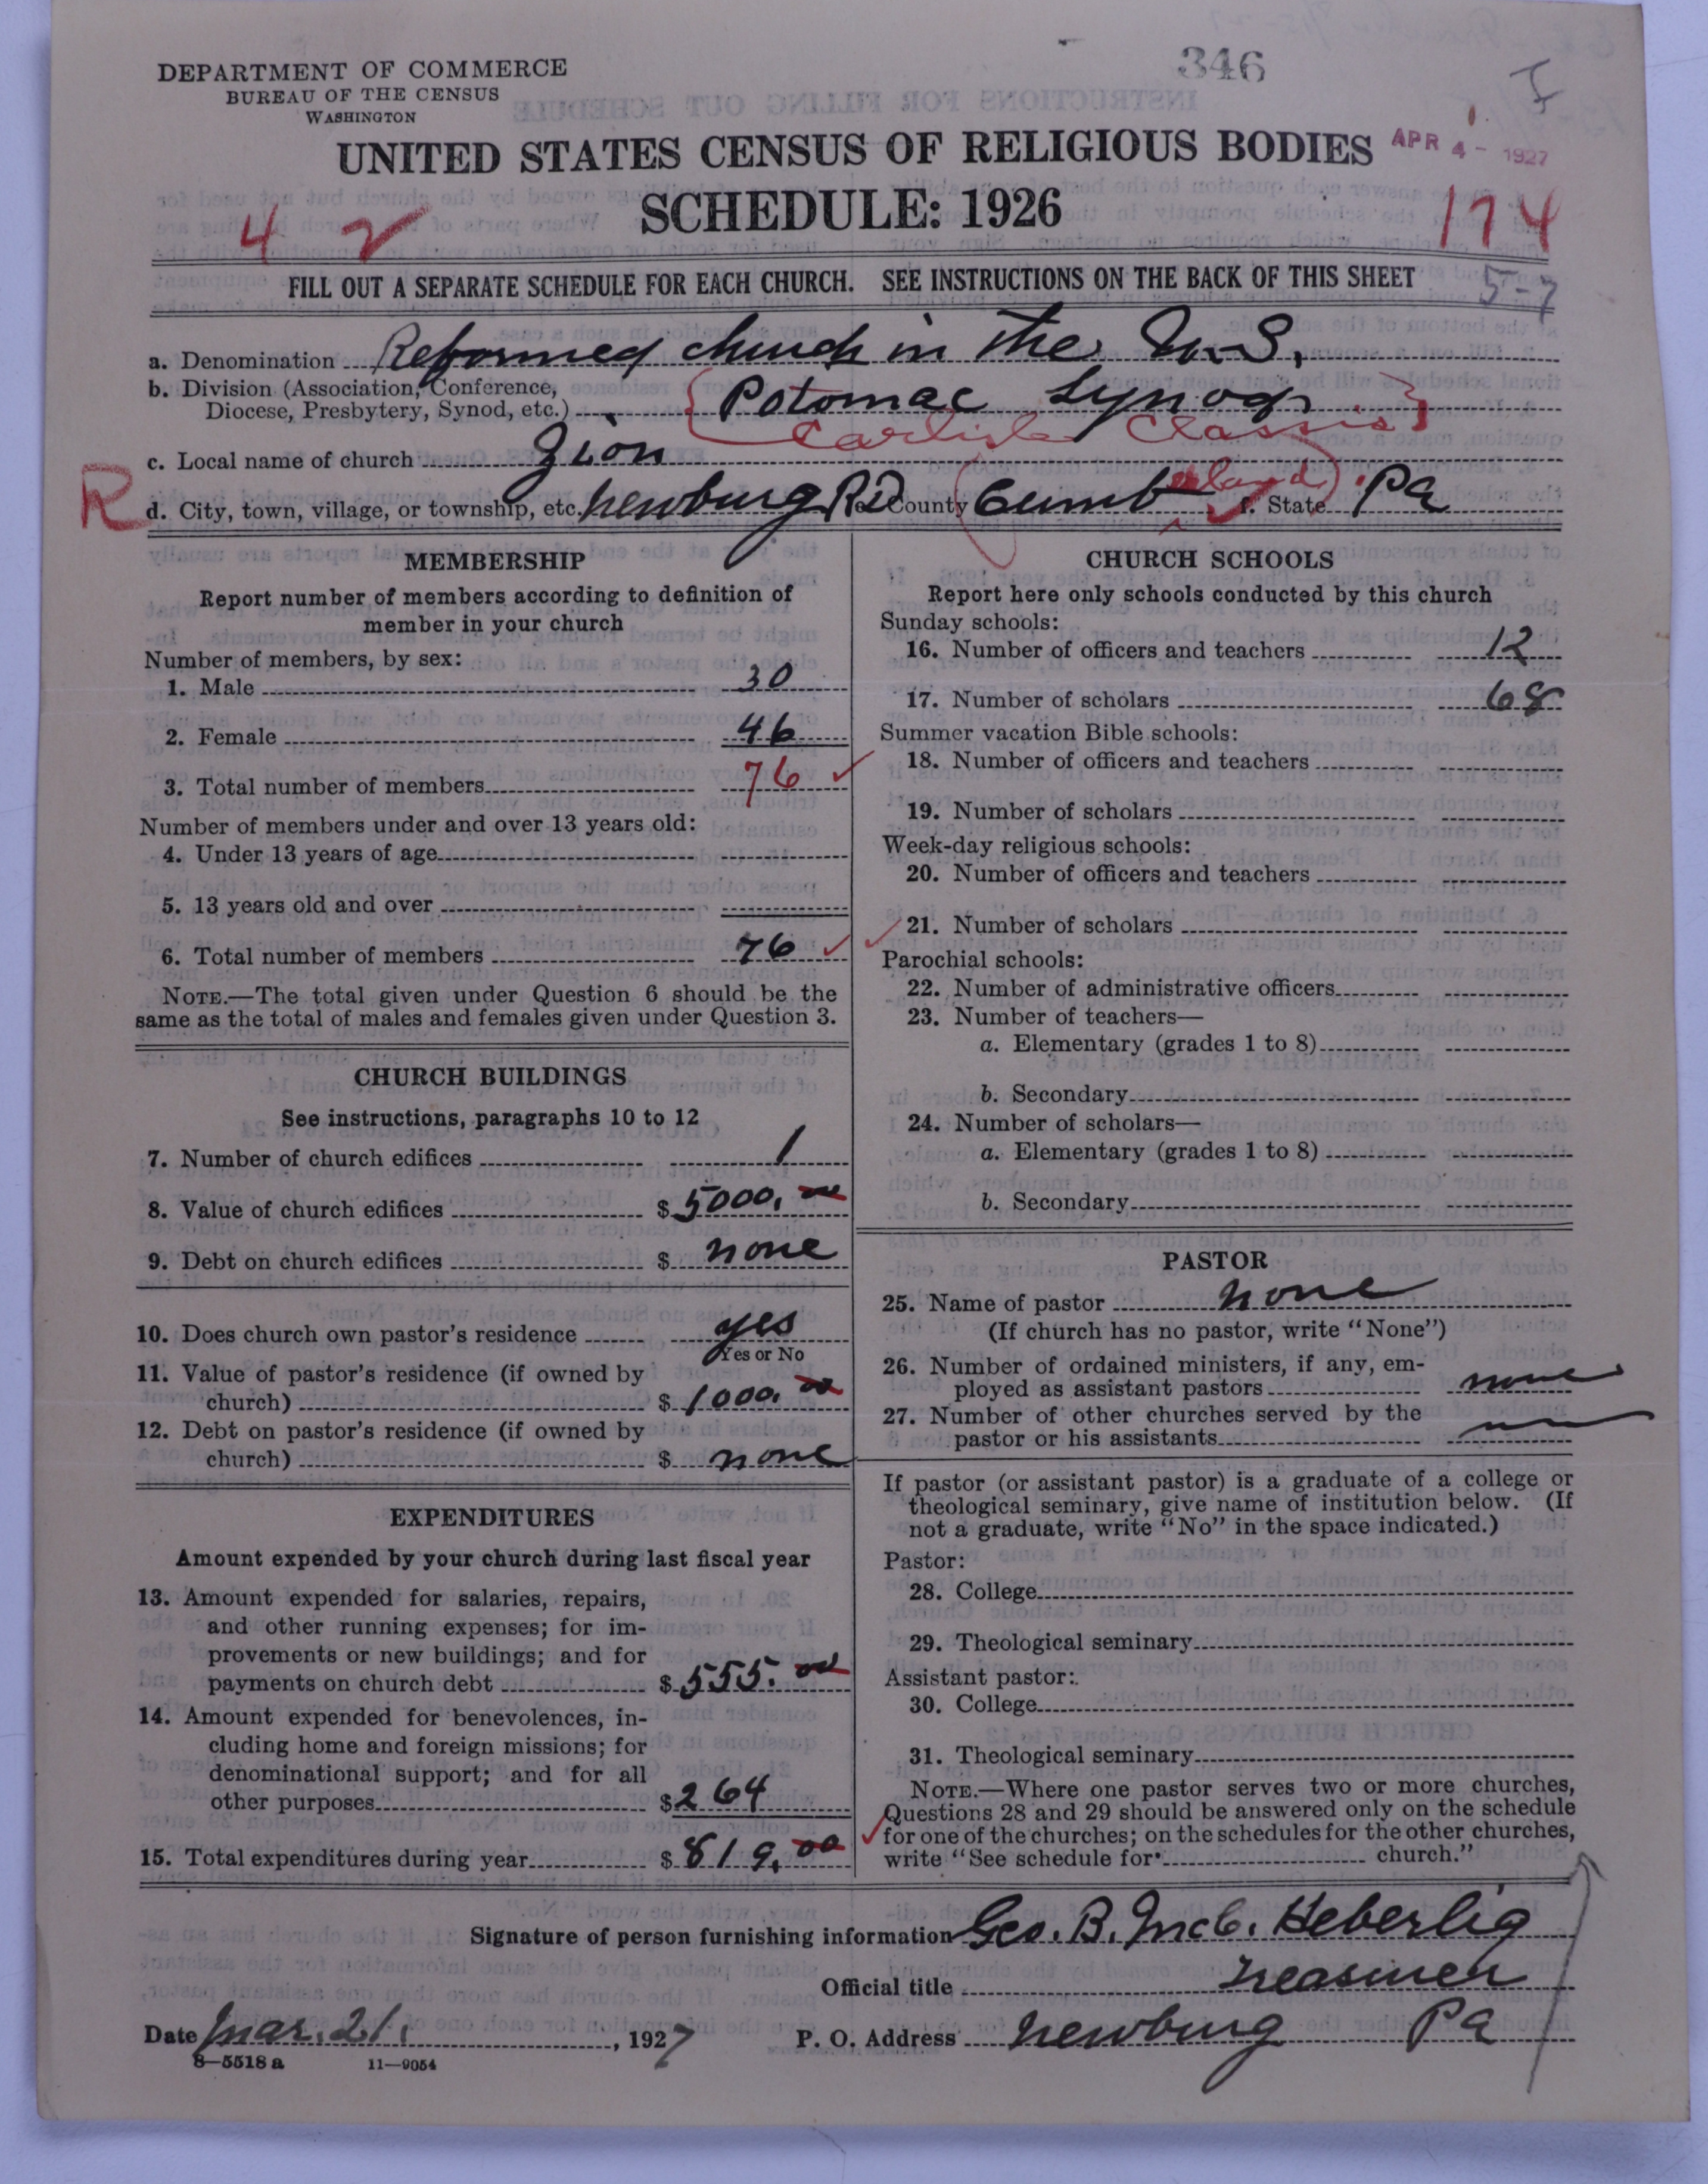 346
I
DEPARTMENT OF COMMERCE
BUREAU OF THE CENSUS
WASHINGTON
UNITED STATES CENSUS OF RELIGIOUS BODIES
APR 4 - 1927
SCHEDULE: 1926
4 2
174
FILL OUT A SEPARATE SCHEDULE FOR EACH CHURCH. SEE INSTRUCTIONS ON THE BACK OF THIS SHEET
5-7
a. Denomination Reformed church in the U.S.
b. Division (Association, Conference,
Diocese, Presbytery, Synod, etc.) {Potomac Synod}
Carlisle Classis
c. Local name of church Zion
R
d. City, town, village, or township, etc. Newburg RD County (Cumberland) f. State Pa
MEMBERSHIP
Report number of members according to definition of
member in your church
Number of members, by sex:
1. Male 30
2. Female 46
3. Total number of members 76 ✓
Number of members under and over 13 years old:
4. Under 13 years of age
5. 13 years old and over
6. Total number of members 76 ✓
NOTE.—The total given under Question 6 should be the
same as the total of males and females given under Question 3.
CHURCH BUILDINGS
See instructions, paragraphs 10 to 12
7. Number of church edifices 1
8. Value of church edifices $ 5000.00
9. Debt on church edifices $ none
10. Does church own pastor's residence yes
Yes or No
11. Value of pastor's residence (if owned by
church) $ 1000.00
12. Debt on pastor's residence (if owned by
church) $ none
EXPENDITURES
Amount expended by your church during last fiscal year
13. Amount expended for salaries, repairs,
and other running expenses; for im-
provements or new buildings; and for
payments on church debt $ 555.00
14. Amount expended for benevolences, in-
cluding home and foreign missions; for
denominational support; and for all
other purposes $ 264
15. Total expenditures during year $ 819.00
CHURCH SCHOOLS
Report here only schools conducted by this church
Sunday schools:
16. Number of officers and teachers 12
17. Number of scholars 68
Summer vacation Bible schools:
18. Number of officers and teachers
19. Number of scholars
Week-day religious schools:
20. Number of officers and teachers
✓ 21. Number of scholars
Parochial schools:
22. Number of administrative officers
23. Number of teachers—
a. Elementary (grades 1 to 8)
b. Secondary
24. Number of scholars—
a. Elementary (grades 1 to 8)
b. Secondary
PASTOR
25. Name of pastor none
(If church has no pastor, write "None")
26. Number of ordained ministers, if any, em-
ployed as assistant pastors none
27. Number of other churches served by the
pastor or his assistants
If pastor (or assistant pastor) is a graduate of a college or
theological seminary, give name of institution below. (If
not a graduate, write "No" in the space indicated.)
Pastor:
28. College
29. Theological seminary
Assistant pastor:
30. College
31. Theological seminary
NOTE.—Where one pastor serves two or more churches,
Questions 28 and 29 should be answered only on the schedule
✓ for one of the churches; on the schedules for the other churches,
write "See schedule for church."
Signature of person furnishing information Geo. B. McC. Heberlig
Official title Treasurer
Date Mar. 21. , 1927 P. O. Address Newburg Pa
8—5518 a 11—9054